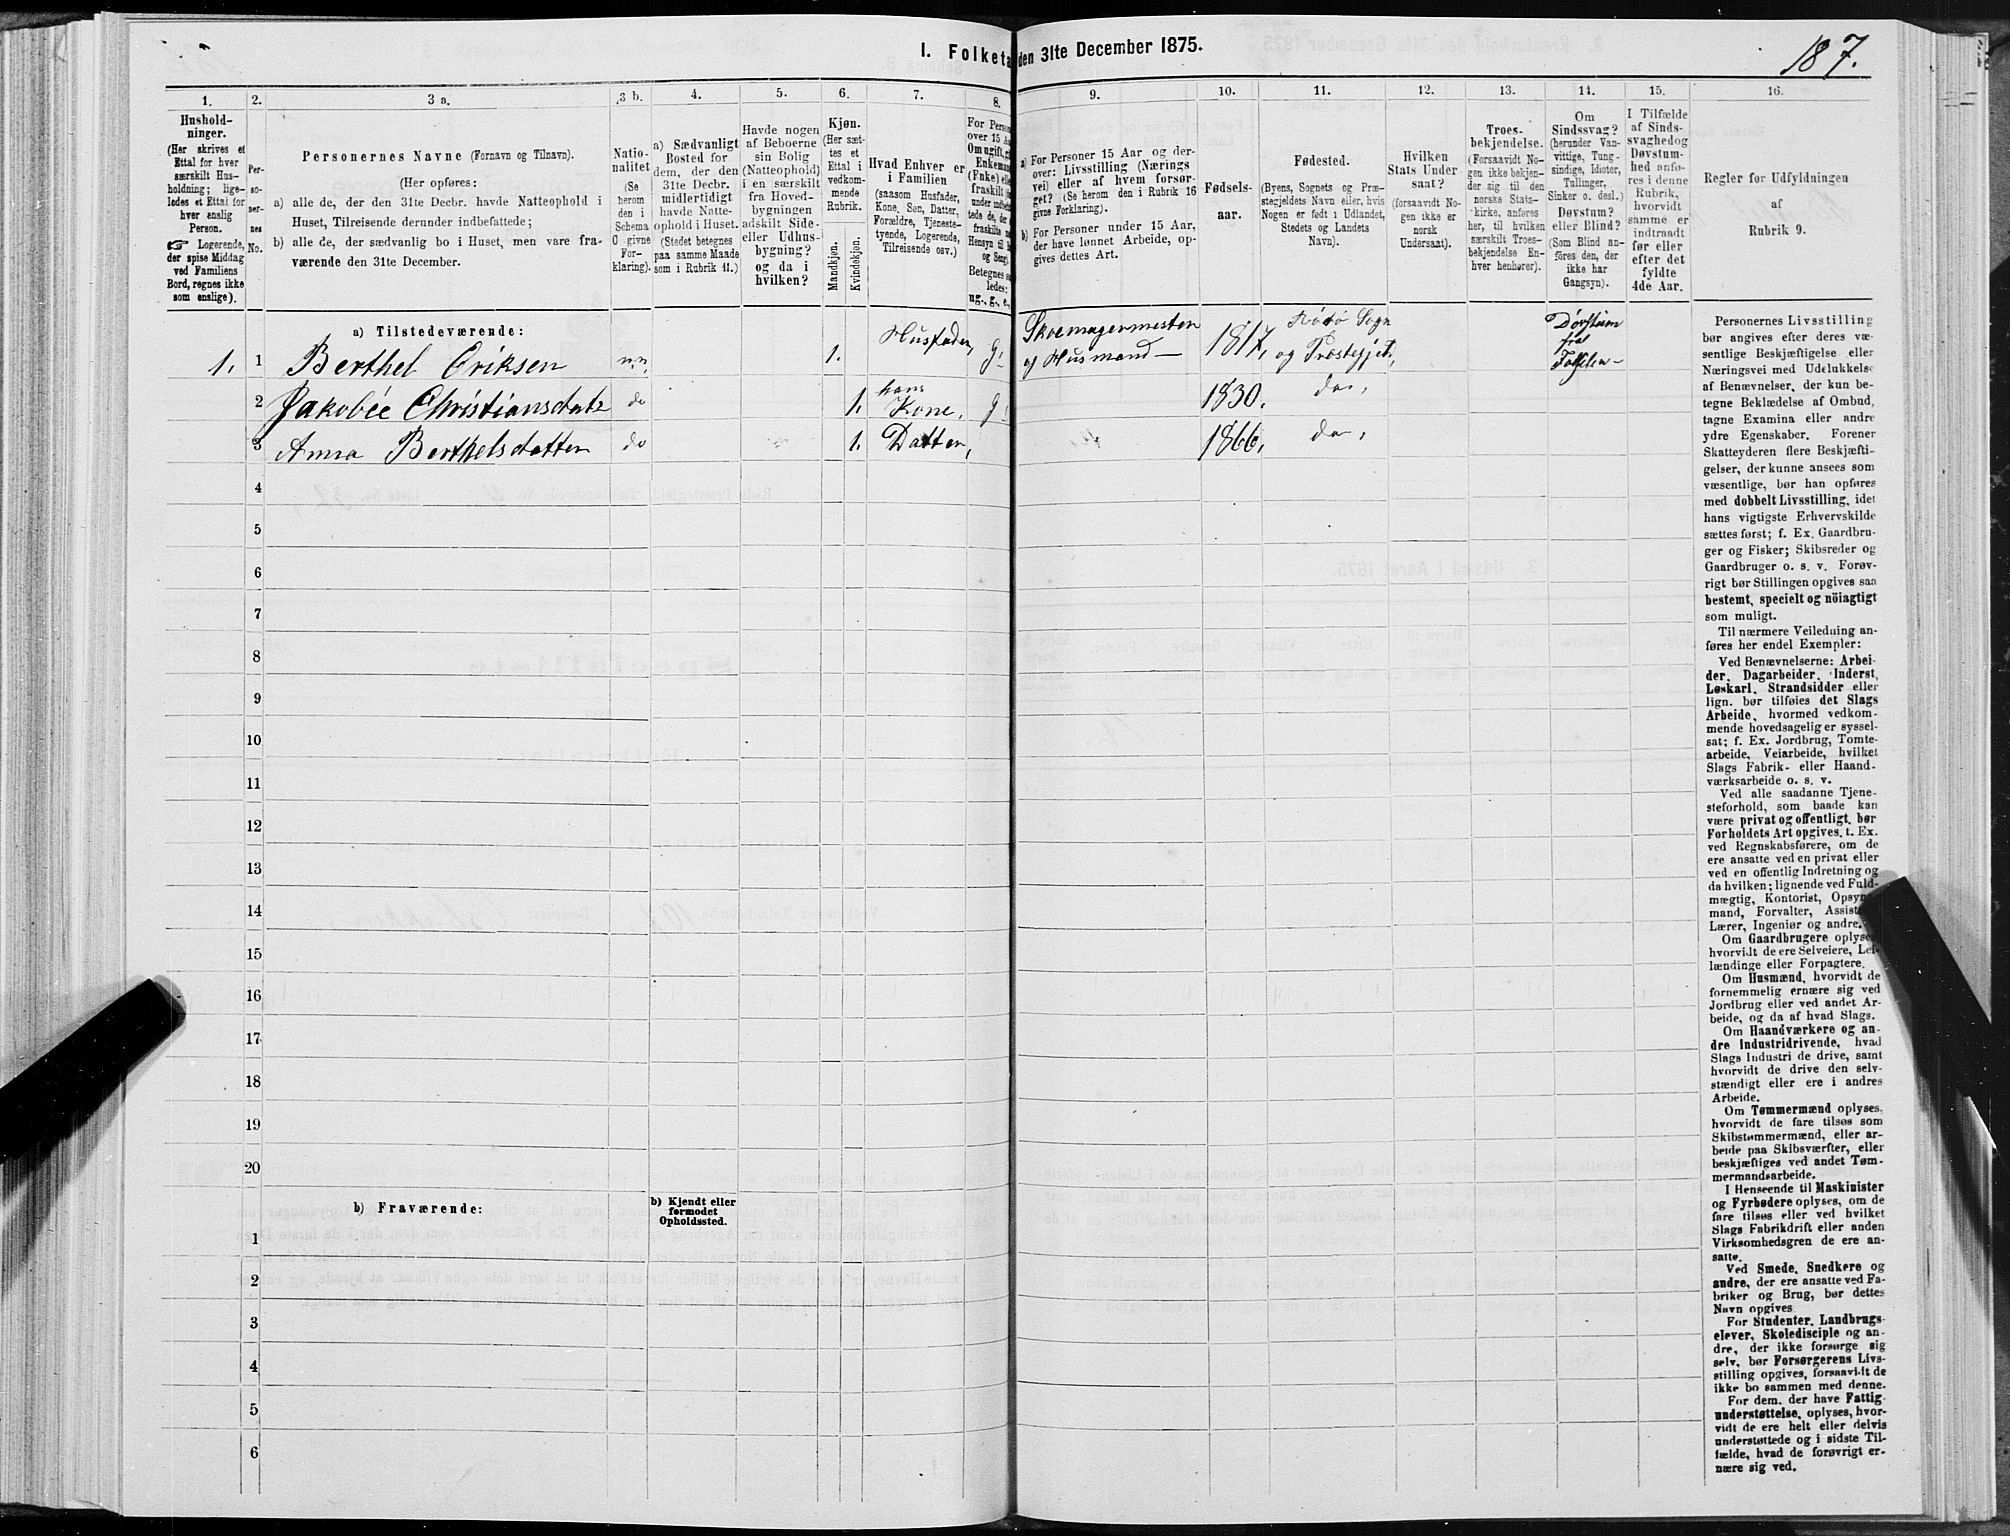 I. Folketa
den 31te December 1875.
187.
1.
Hushold-
ninger.
(Her skrives et
Ettal for hver
særskilt Hus-
holdning; lige-
ledes et Ettal for
hver enslig
Person.
☞ Logerende,
der spise Middag
ved Familiens
Bord, regnes ikke
som enslige).
2.
Per-
so-
ner-
nes
No.
3 a.
Personernes Navne (Fornavn og Tilnavn).
(Her opføres:
a) alle de, der den 31te Decbr. havde Natteophold i
Huset, Tilreisende derunder indbefattede;
b) alle de, der sædvanlig bo i Huset, men vare fra-
værende den 31te December.
3 b.
Natio-
nalitet
(Se
herom
den i
Schema
O givne
For-
klaring).
4.
a) Sædvanligt
Bosted for
dem, der den
31te Decbr.
midlertidigt
havde Natte-
ophold i Huset.
(Stedet betegnes
paa samme Maade
som i Rubrik 11.)
5.
Havde nogen
af Beboerne
sin Bolig
(Natteophold)
i en særskilt
fra Hoved-
bygningen
adskilt Side-
eller Udhus-
bygning?
og da i
hvilken?
6.
Kjøn.
(Her sæt-
tes et
Ettal i
vedkom-
mende
Rubrik.
Mandkjøn.
Kvindekjøn.
7.
Hvad Enhver er
i Familien
(saasom Husfader,
Kone, Søn, Datter,
Forældre, Tjeneste-
tyende, Logerende,
Tilreisende osv.)
8.
For Person
over 15 A
Om ugift, gi
Enkeman
(Enke) elle
fraskilt
under indbefat
tede de, der e
fraskilte m
Hensyn til b
og Seng
Betegnes sa
ledes:
ug., g., e.,
9.
a) For Personer 15 Aar og der-
over: Livsstilling (Nærings
vei) eller af hvem forsør-
get? (Se herom den i Rubrik 16
givne Forklaring).
b) For Personer under 15 Aar,
der have lønnet Arbeide, op-
gives dettes Art.
10.
Fødsels-
aar.
11.
Fødested.
(Byens, Sognets og Præ-
stegjeldets Navn eller, hvis
Nogen er født i Udlandet,
Stedets og Landets
Navn).
12.
Hvilken
Stats Under
saat?
(forsaavidt No-
gen ikke er
norsk
Undersaat).
13.
Troes-
bekjendelse.
(Forsaavidt No-
gen ikke bekjen-
der sig til den
norske Stats-
kirke, anføres
her, til hvilken
særskilt Troes-
bekjendelse En-
hver henhører).
14.
Om
Sindssvag?
(herunder Van-
vittige, Tung-
sindige, Idioter,
Tullinger,
Sinker o. desl.)
Døvstum?
eller Blind?
(Som Blind an-
føres den, der
ikke har
Gangsyn).
15.
I Tilfælde
af Sinds-
svaghedog
Døvstum-
hed anfø-
res i denne
Rubrik,
hvorvidt
samme er
indtraadt
før eller
efter det
fyldte
4de Aar.
16.
Regler for Udfyldningen
af
Rubrik 9.
a) Tilstedeværende:
1. 1 Berthel Eriksen n.n. 1. Husfader, g, Skoemagermester 1817, Rödö Sogn Døvstum
og Husmand— og Præstegjeld, fra
Fødselen—
2 Jakobée Christiansdatr do 1. hans g. 1830. do,
Kone,
3 Anna Berthelsdatter do 1. Datter, 1866, do,
4
5
6
7
8
9
10
11
12
13
14
15
16
17
18
19
20
b) Fraværende:
b) Kjendt eller
formodet
Opholdssted.
1
2
3
4
5
6
Personernes Livsstilling
bør angives efter deres væ-
sentlige Beskjæftigelse eller
Næringsvei med Udelukkelse
af Benævnelser, der kun be-
tegne Beklædelse af Ombud,
tagne Examina eller andre
ydre Egenskaber. Forener
Skatteyderen flere Beskjæfti-
gelser, der kunne ansees som
væsentlige, bør han opføres
med dobbelt Livsstilling, idet
hans vigtigste Erhvervskilde
sættes først; f. Ex. Gaardbru-
ger og Fisker; Skibsreder og
Gaardbruger o. s. v. Forøv-
rigt bør Stillingen opgives saa
bestemt, specielt og nöiagtigt
som muligt.
Til nærmere Veiledning an-
føres her endel Exempler:
Ved Benævnelserne: Arbei-
der, Dagarbeider, Inderst,
Løskarl, Strandsidder eller
lign. bør tilføies det Slags
Arbeide, hvormed vedkom-
mende hovedsagelig er syssel-
sat; f. Ex. Jordbrug, Tomte-
arbeide, Veiarbeide, hvilket
Slags Fabrik- eller Haand-
værksarbeide o. s. v.
Ved alle saadanne Tjene-
steforhold, som baade kan
være privat og offentligt, bør
Forholdets Art opgives, t. Ex.
ved Regnskabsførere, om de
ere ansatte ved en privat eller
ved en offentlig Indretning og
da hvilken; lignende ved Fuld-
mægtig, Kontorist, Opsyns-
mand, Forvalter, Assist
Lærer, Ingeniør og andre.
Om Gaardbrugere oplyses
hvorvidt de ere Selveiere, Lei-
lændinge eller Forpagtere.
Om Husmænd, hvorvidt de
fornemmelig ernære sig ved
Jordbrug eller ved andet Ar-
beide, og da af hvad Slags.
Om Haandværkere og an-
dre Industridrivende, hvad
Slags Industri de drive, samt
hvorvidt de drive den selv-
stændigt eller ere i andres
Arbeide.
Om Tømmermænd oplyses,
hvorvidt de fare tilsøs som
Skibstømmermænd, eller ar-
beide paa Skibsværfter, eller
beskjæftiges ved andet Tøm-
mermandsarbeide.
I Henseende til Maskinister
og Fyrbødere oplyses, om de
fare tilsøs eller ved hvilket
Slags Fabrikdrift eller anden
Virksomhedsgren de ere an-
satte.
Ved Smede, Snedkere og
andre, der ere ansatte ved Fa-
briker og Brug, bør dettes
Navn opgives.
For Studenter, Landbrugs-
elever, Skoledisciple og an-
dre, der ikke forsørge sig
selv, bør Forsørgerens Livs-
stilling opgives, forsaavidt de
ikke bo sammen med denne.
For dem, der have Fattig-
understøttelse, oplyses, hvor-
vidt de ere helt eller delvis
understøttede og i sidste Til-
fælde, hvad de forøvrigt er-
nære sig ved.